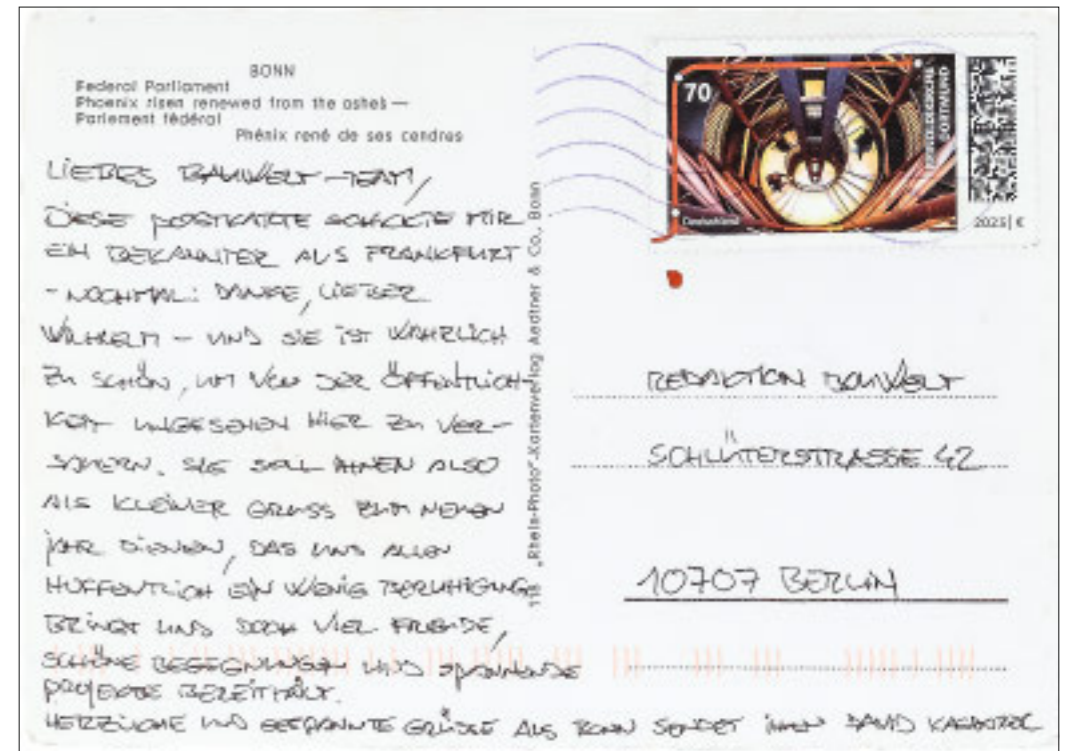 BONN
Federal Parliament
Phoenix risen renewed from the ashes —
Parlement fédéral
Phénix rené de ses cendres
LIEBES BAUWELT-TEAM,
DIESE POSTKARTE SCHICKTE MIR
EIN BEKANNTER AUS FRANKFURT
- NOCHMAL: DANKE, LIEBER
WILHELM - UND SIE IST WAHRLICH
ZU SCHÖN, UM VON DER ÖFFENTLICH-
KEIT UNGESEHEN HIER ZU VER-
SAUERN. SIE SOLL IHNEN ALSO
ALS KLEINER GRUSS ZUM NEUEN
JAHR DIENEN, DAS UNS ALLEN
HOFFENTLICH EIN WENIG BERUHIGUNG
BRINGT UND DOCH VIEL FREUDE,
SCHÖNE BEGEGNUNGEN UND SPANNENDE
PROJEKTE BEREITHÄLT.
HERZLICHE UND GESPANNTE GRÜSSE AUS BONN SENDET IHNEN DAVID
118 „Rhein-Photo"-Kartenverlag Aedtner & Co, Bonn
70
DORTMUND
Deutschland
2023 | €
REDAKTION BAUWELT
SCHLÜTERSTRASSE 42
10707 BERLIN